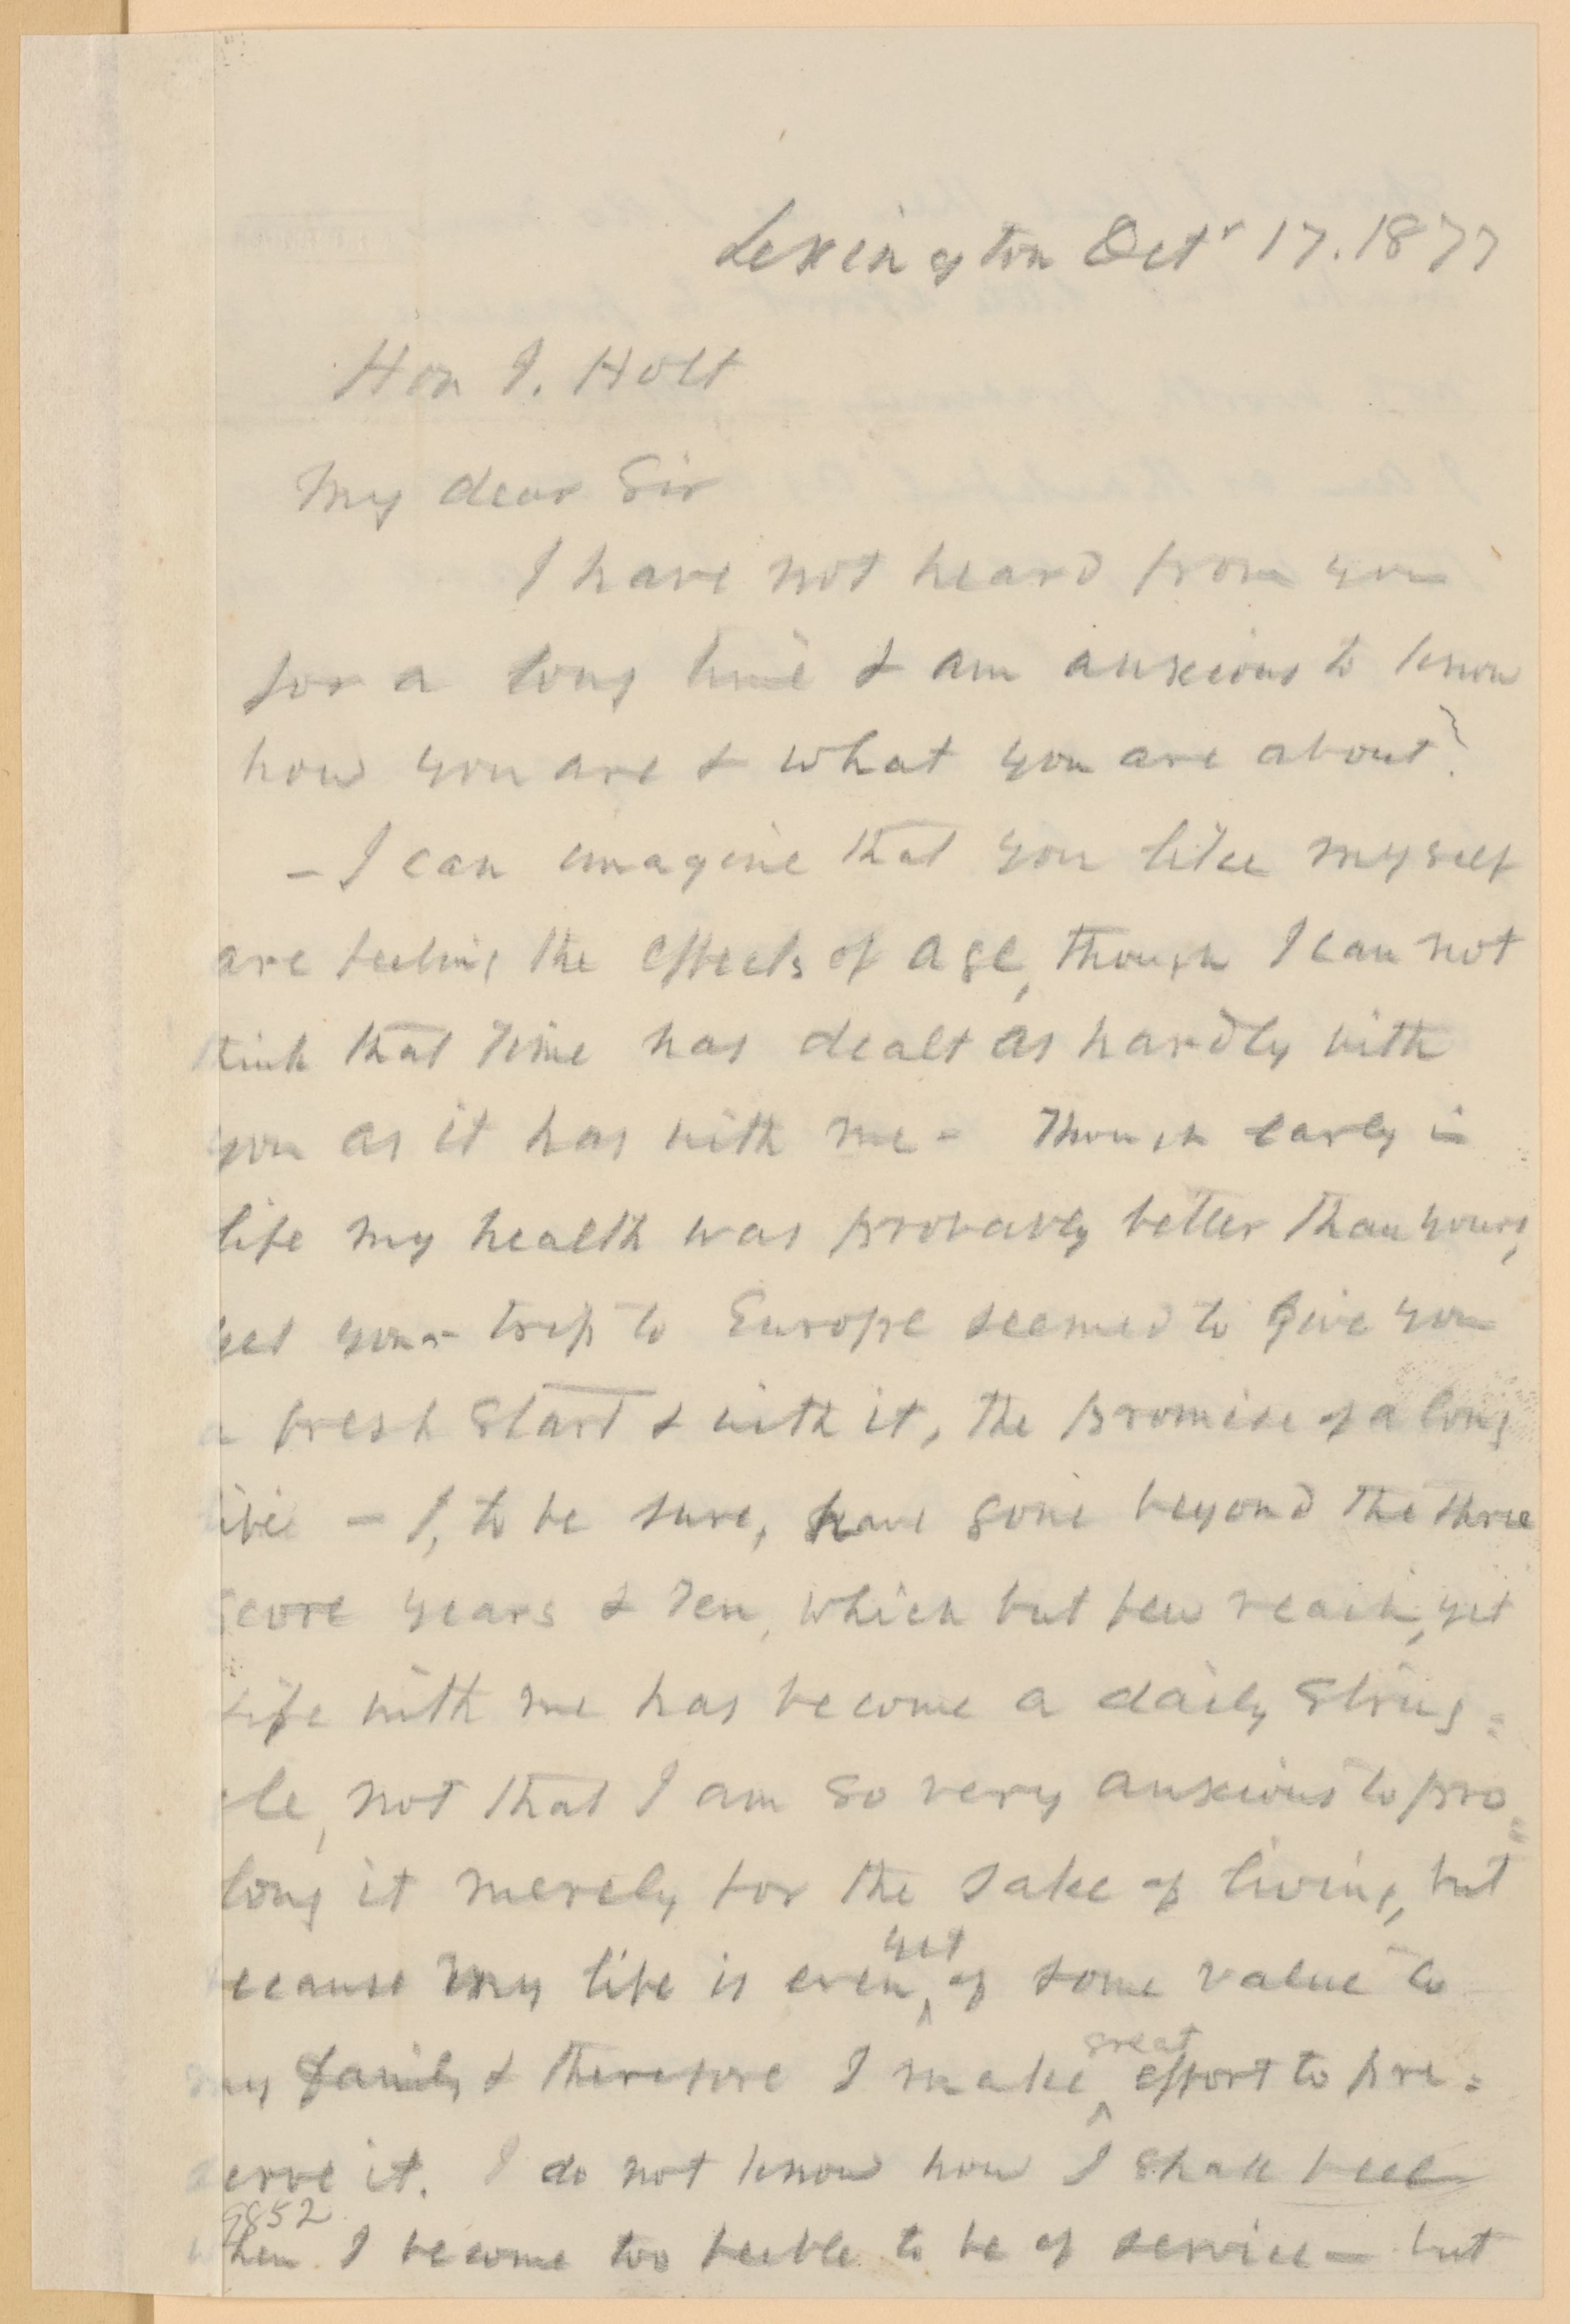 Lexington Octr 17. 1877
Hon J. Holt
My dear Sir
I have not heard from you
for a long time & am anxious to know
how you are & what you are about?
- I can imagine that you like myself
are feeling the effects of age, though I can not
think that Time has dealt as hardly with
you as it has with me - Though early in
life my health was probably better than yours,
yet your trip to Europe seemed to give you
a fresh start & with it, the promise of a long
life - I, to be sure, have gone beyond the three
score years & Ten, which but few reach, yet
life with me has become a daily strug=
gle, not that I am so very anxious to pro=
long it merely for the sake of living, but
because my life is even yet of some value to
my family & therefore I make great effort to pre=
serve it. I do not know how I shall feel
9852
when I become too feeble to be of service - but